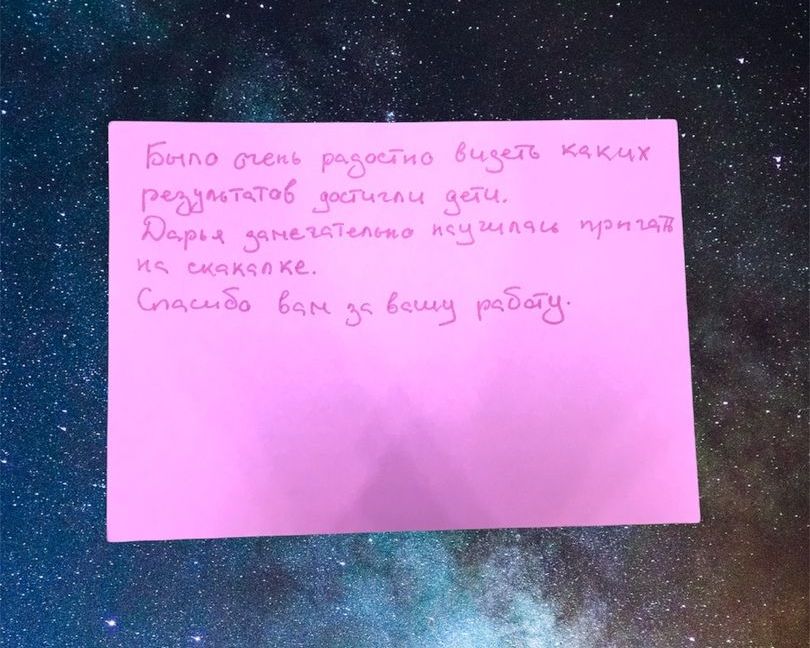 Было очень радостно видеть каких
результатов достигли дети.
Дарья замечательно научилась пригать
на скакалке.
Спасибо вам за вашу работу.